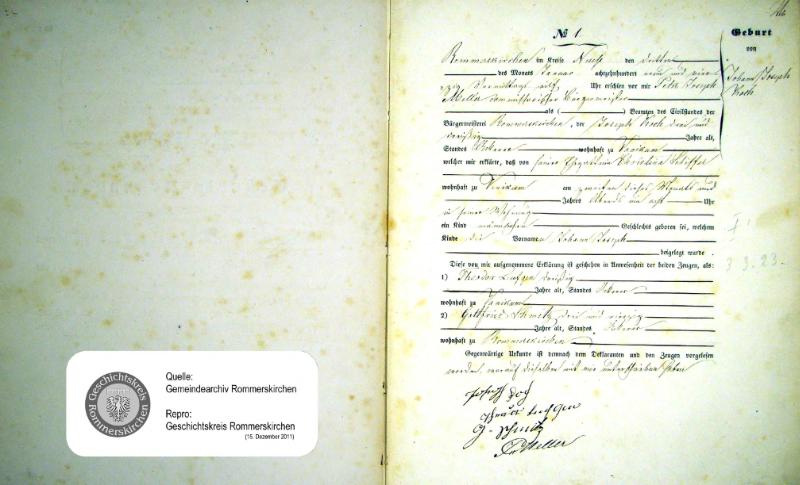 № 1.
Geburt
von
Johann Joseph
Koch
Rommerskirchen im Kreise Neuß den dritten
des Monats Januar achtzehnhundert neun und
Vormittags elf Uhr erschien vor mir Peter Joseph
Meller commissarischer Bürgermeister
als ( ) Beamten des Civilstandes der
Bürgermeisterei Rommerskirchen, der Joseph Koch drei und
dreißig Jahre alt,
Standes Ackerer wohnhaft zu Vanikum
welcher mir erklärte, daß von seiner Ehegattin Christina Schiffer
wohnhaft zu Vanikum am zweiten dieses Monats und
Jahres Abends um acht Uhr
in seiner Wohnung
ein Kind männlichen Geschlechts geboren sei, welchem
Kinde die Vornamen Johann Joseph
beigelegt wurde.
Diese von mir aufgenommene Erklärung ist geschehen in Anwesenheit der beiden Zeugen, als:
1) Theodor dreißig
Jahre alt, Standes Ackerer
wohnhaft zu Vanikum
2) Gottfried Schmitz drei und vierzig
Jahre alt, Standes Ackerer
wohnhaft zu Rommerskirchen
Gegenwärtige Urkunde ist demnach dem Declaranten und den Zeugen vorgelesen
worden, worauf dieselben mit mir unterschrieben haben
Joseph Koch
G. Schmitz
Meller
3.3.23.
Geschichtskreis
Rommerskirchen
Quelle:
Gemeindearchiv Rommerskirchen
Repro:
Geschichtskreis Rommerskirchen
(15. Dezember 2011)